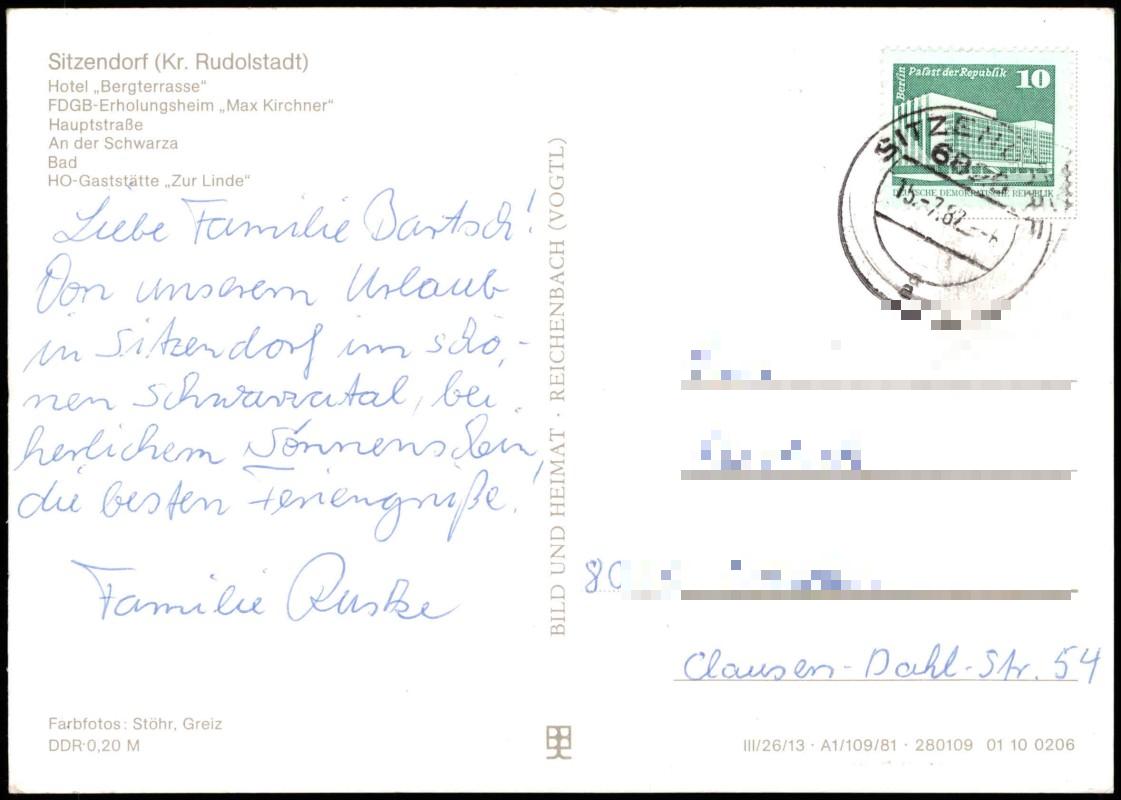 Sitzendorf (Kr. Rudolstadt)
Hotel „Bergterrasse“
FDGB-Erholungsheim „Max Kirchner“
Hauptstraße
An der Schwarza
Bad
HO-Gaststätte „Zur Linde“
Liebe Familie Bartsch!
Von unserem Urlaub
in Sitzendorf im schö-
nen Schwarzatal, bei
herlichem Sonnenschein,
die besten Feriengrüße!
Familie
Farbfotos: Stöhr, Greiz
DDR 0,20 M
BILD UND HEIMAT · REICHENBACH (VOGTL)
Berlin
Palast der Republik
10
DEUTSCHE DEMOKRATISCHE REPUBLIK
SITZENDORF
15.-7.82
a
80
Clausen-Dahl-Str. 54
III/26/13 · A1/109/81 · 280109 01 10 0206